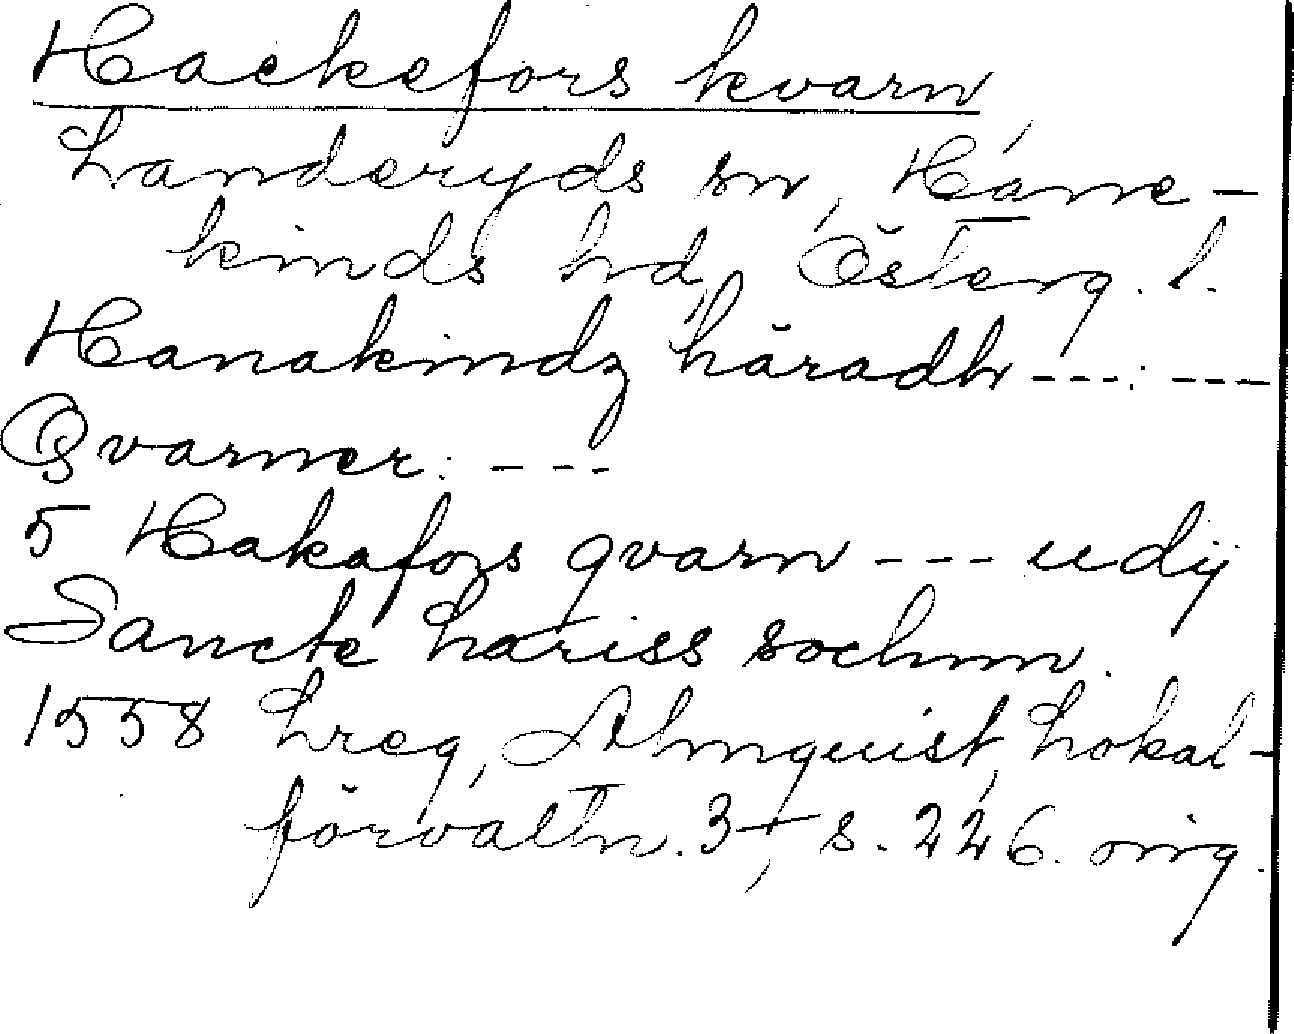 Hackefors kvarn
Landeryds sn, Hane-
kinds hd, Österg. l.
Hanakindz häradh ---: ---
Qvarner: ---
5 Hakafors qvarn --- udij
Sancte Lariss sochnn.
1558 Lreg, Almquist, Lokal-
förvaltn. 3, s. 226.